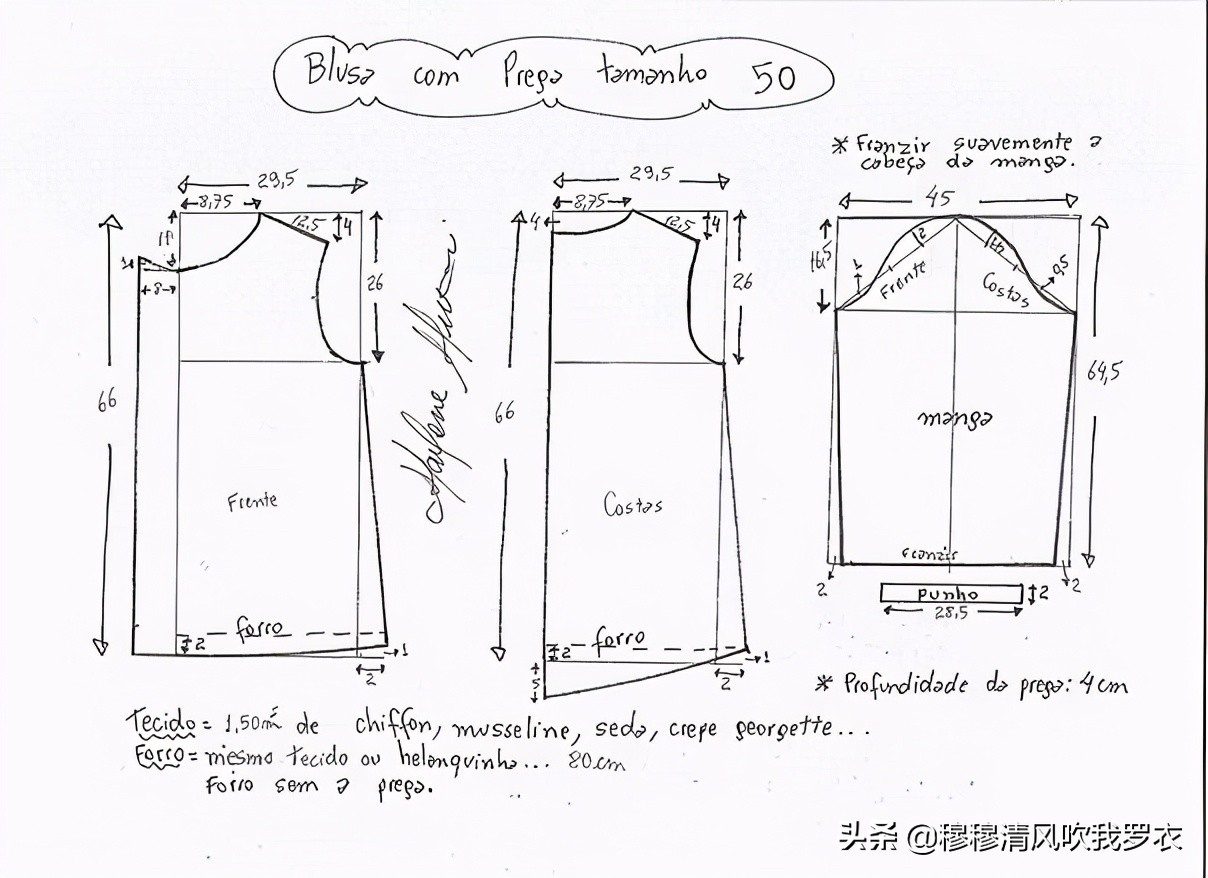 Blusa com Prega tamanho 50
* Franzir suavemente a
cabeça da manga.
29,5
8,75
12,5
4
11
1
8
26
66
Frente
forro
2
1
2
29,5
8,75
4
12,5
4
26
66
Costas
forro
2
5
1
2
45
16,5
1
2
Frente
Costas
0,5
64,5
manga
franzir
2
2
punho
2
28,5
* Profundidade da prega: 4 cm
Tecido = 1,50 m de chiffon, musseline, seda, crepe georgette...
Forro = mesmo tecido ou helanquinha... 80cm
Forro sem a prega.
头条 @穆穆清风吹我罗衣